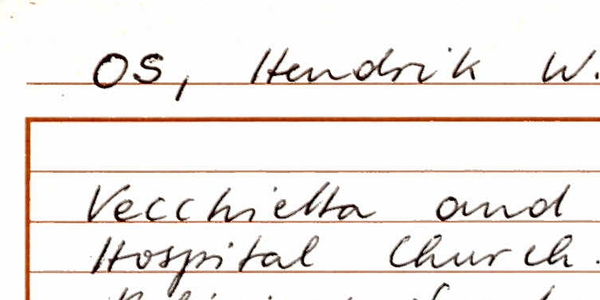 OS, Hendrik W.
Vecchietta and
Hospital Church.